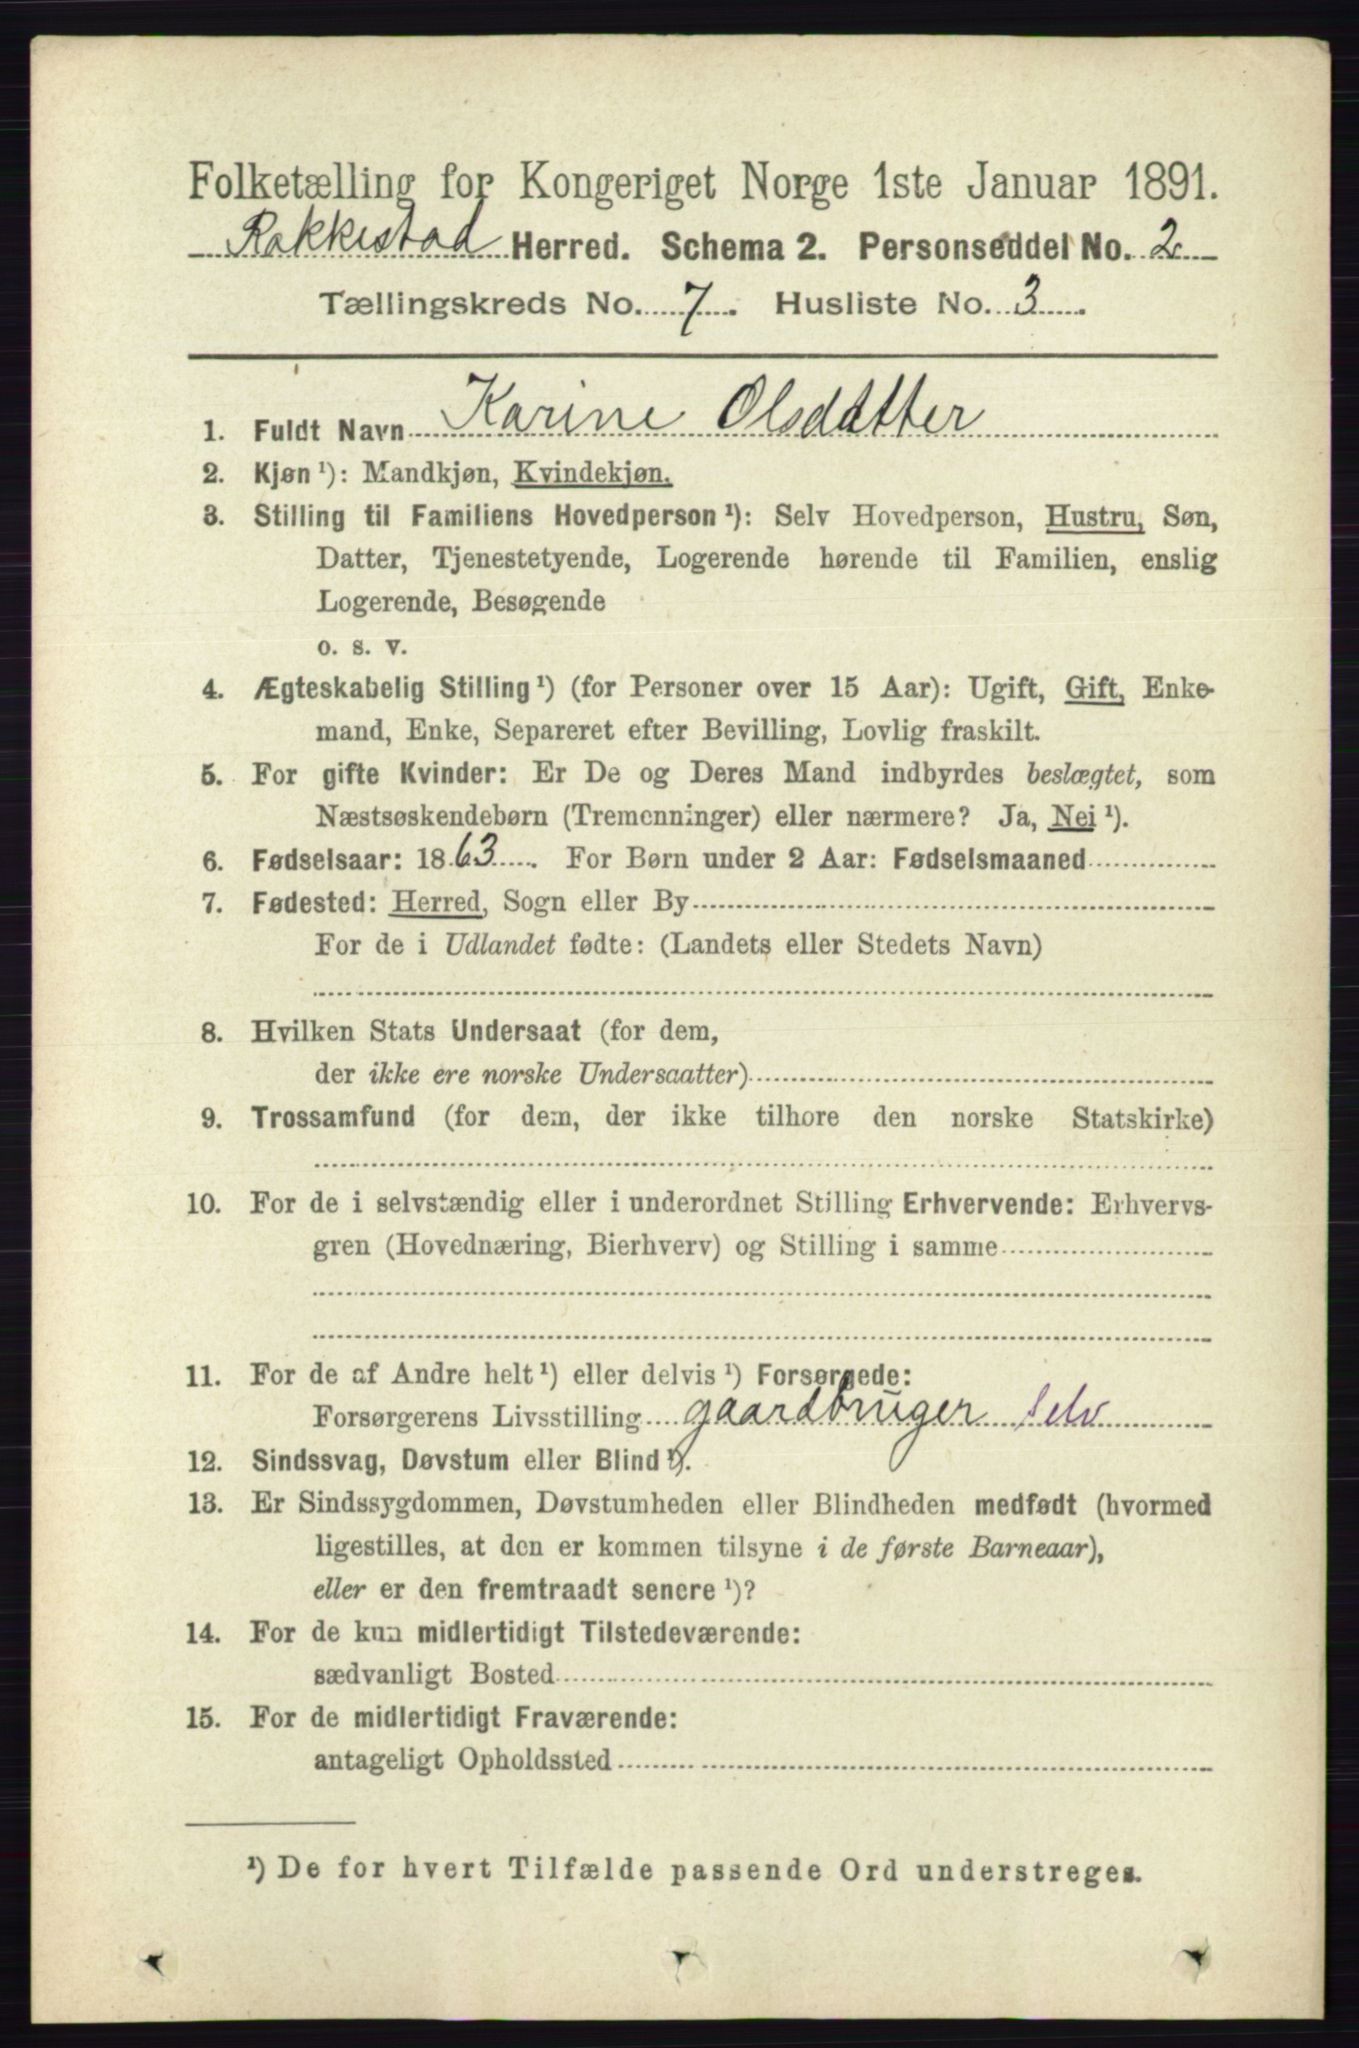 Folketælling for Kongeriget Norge 1ste Januar 1891.
Rakkestad Herred. Schema 2. Personseddel No. 2
Tællingskreds No. 7. Husliste No. 3.
1. Fuldt Navn Karine Olsdatter
2. Kjøn ¹): Mandkjøn, Kvindekjøn.
3. Stilling til Familiens Hovedperson ¹): Selv Hovedperson, Hustru, Søn,
Datter, Tjenestetyende, Logerende hørende til Familien, enslig
Logerende, Besøgende
o. s. v.
4. Ægteskabelig Stilling ¹) (for Personer over 15 Aar): Ugift, Gift, Enke-
mand, Enke, Separeret efter Bevilling, Lovlig fraskilt.
5. For gifte Kvinder: Er De og Deres Mand indbyrdes beslægtet, som
Næstsøskendebørn (Tremenninger) eller nærmere? Ja, Nei ¹).
6. Fødselsaar: 1863. For Børn under 2 Aar: Fødselsmaaned
7. Fødested: Herred, Sogn eller By
For de i Udlandet fødte: (Landets eller Stedets Navn)
8. Hvilken Stats Undersaat (for dem,
der ikke ere norske Undersaatter)
9. Trossamfund (for dem, der ikke tilhøre den norske Statskirke)
10. For de i selvstændig eller i underordnet Stilling Erhvervende: Erhvervs-
gren (Hovednæring, Bierhverv) og Stilling i samme
11. For de af Andre helt ¹) eller delvis ¹) Forsørgede:
Forsørgerens Livsstilling gaardbruger Selv
12. Sindssvag, Døvstum eller Blind ¹).
13. Er Sindssygdommen, Døvstumheden eller Blindheden medfødt (hvormed
ligestilles, at den er kommen tilsyne i de første Barneaar),
eller er den fremtraadt senere ¹)?
14. For de kun midlertidigt Tilstedeværende:
sædvanligt Bosted
15. For de midlertidigt Fraværende:
antageligt Opholdssted
¹) De for hvert Tilfælde passende Ord understreges.